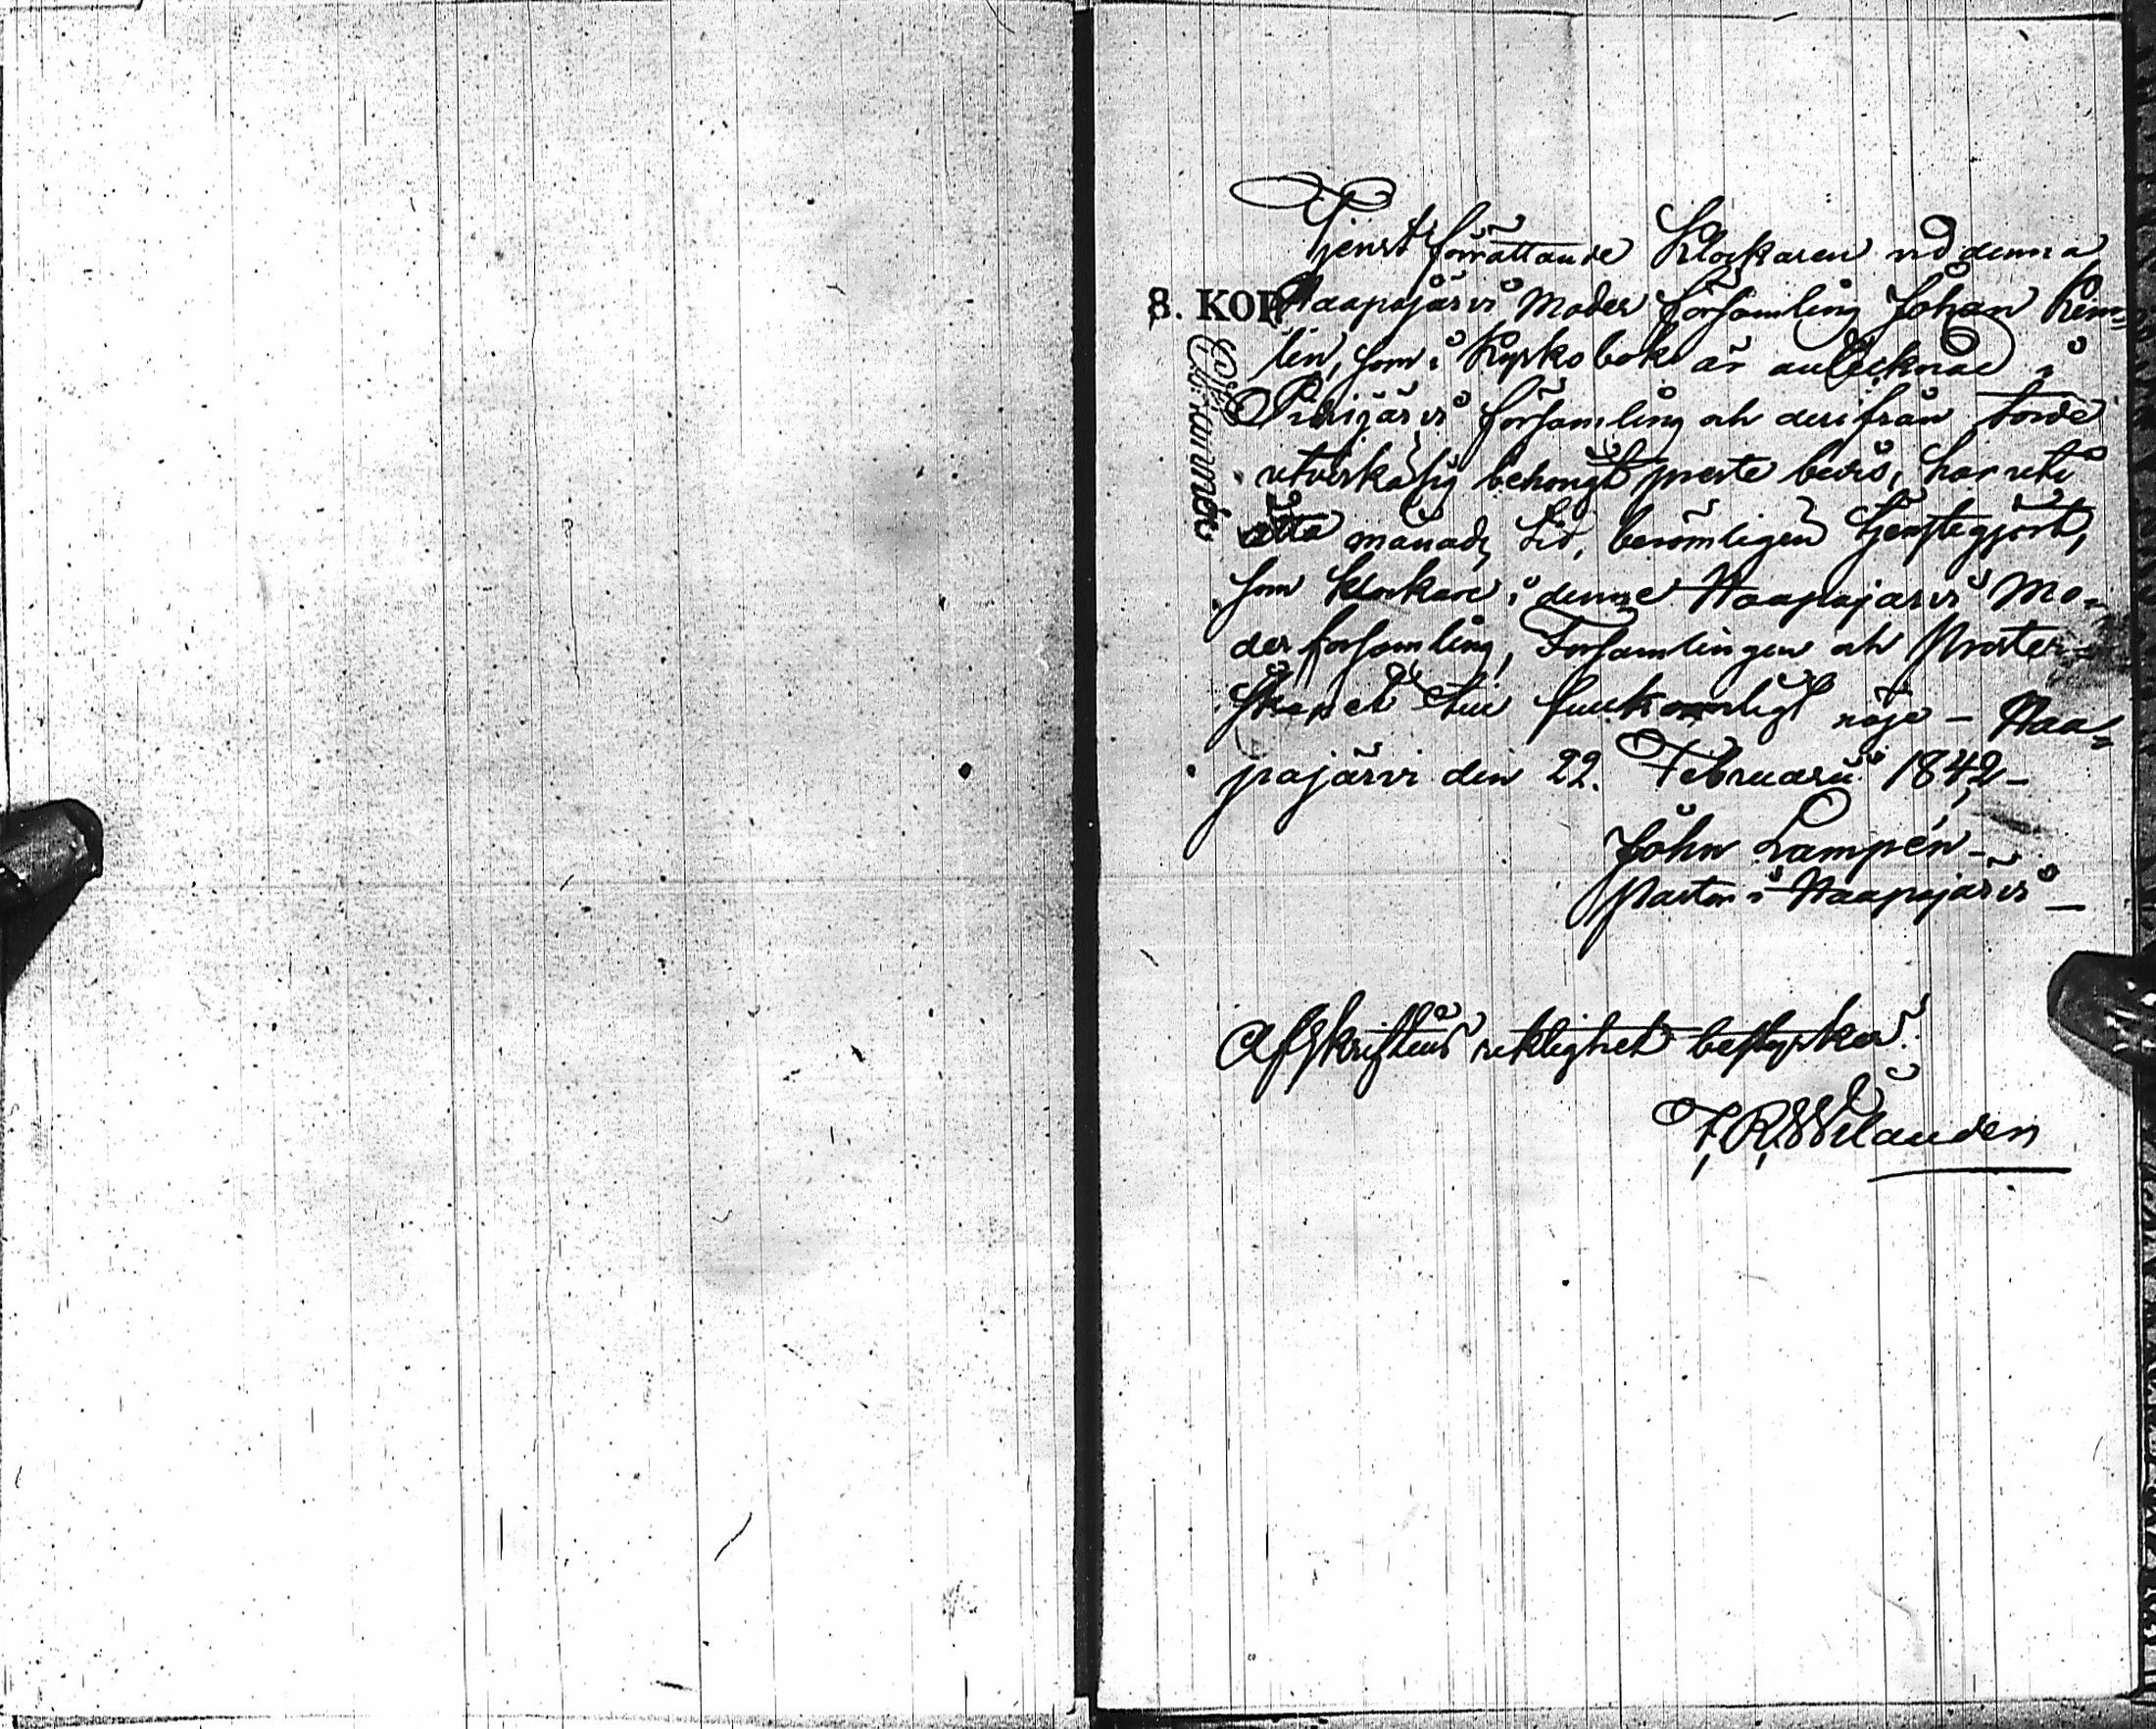 Tjenst förrättande Klockaren vid denna
8. KOP Haapajärvi Moder församling Johan Rem=
len, som i Kyrkobok är antecknad i
Pidisjärvi församling och derifrån torde
utverka sig behörigt preste bevis, har uti
åtta månads tid, berömligen tjenstegjort,
som klockare i denne Haapajärvi Mo=
der församling, Församlingen och Prester=
skapet till fullkomligt nöje - Haa=
pajärvi den 22. Februarii 1842 -
John Lampén -
Pastor i Haapajärvi -
Afskriftens riktighet bestyrker:
F. R. Welanden